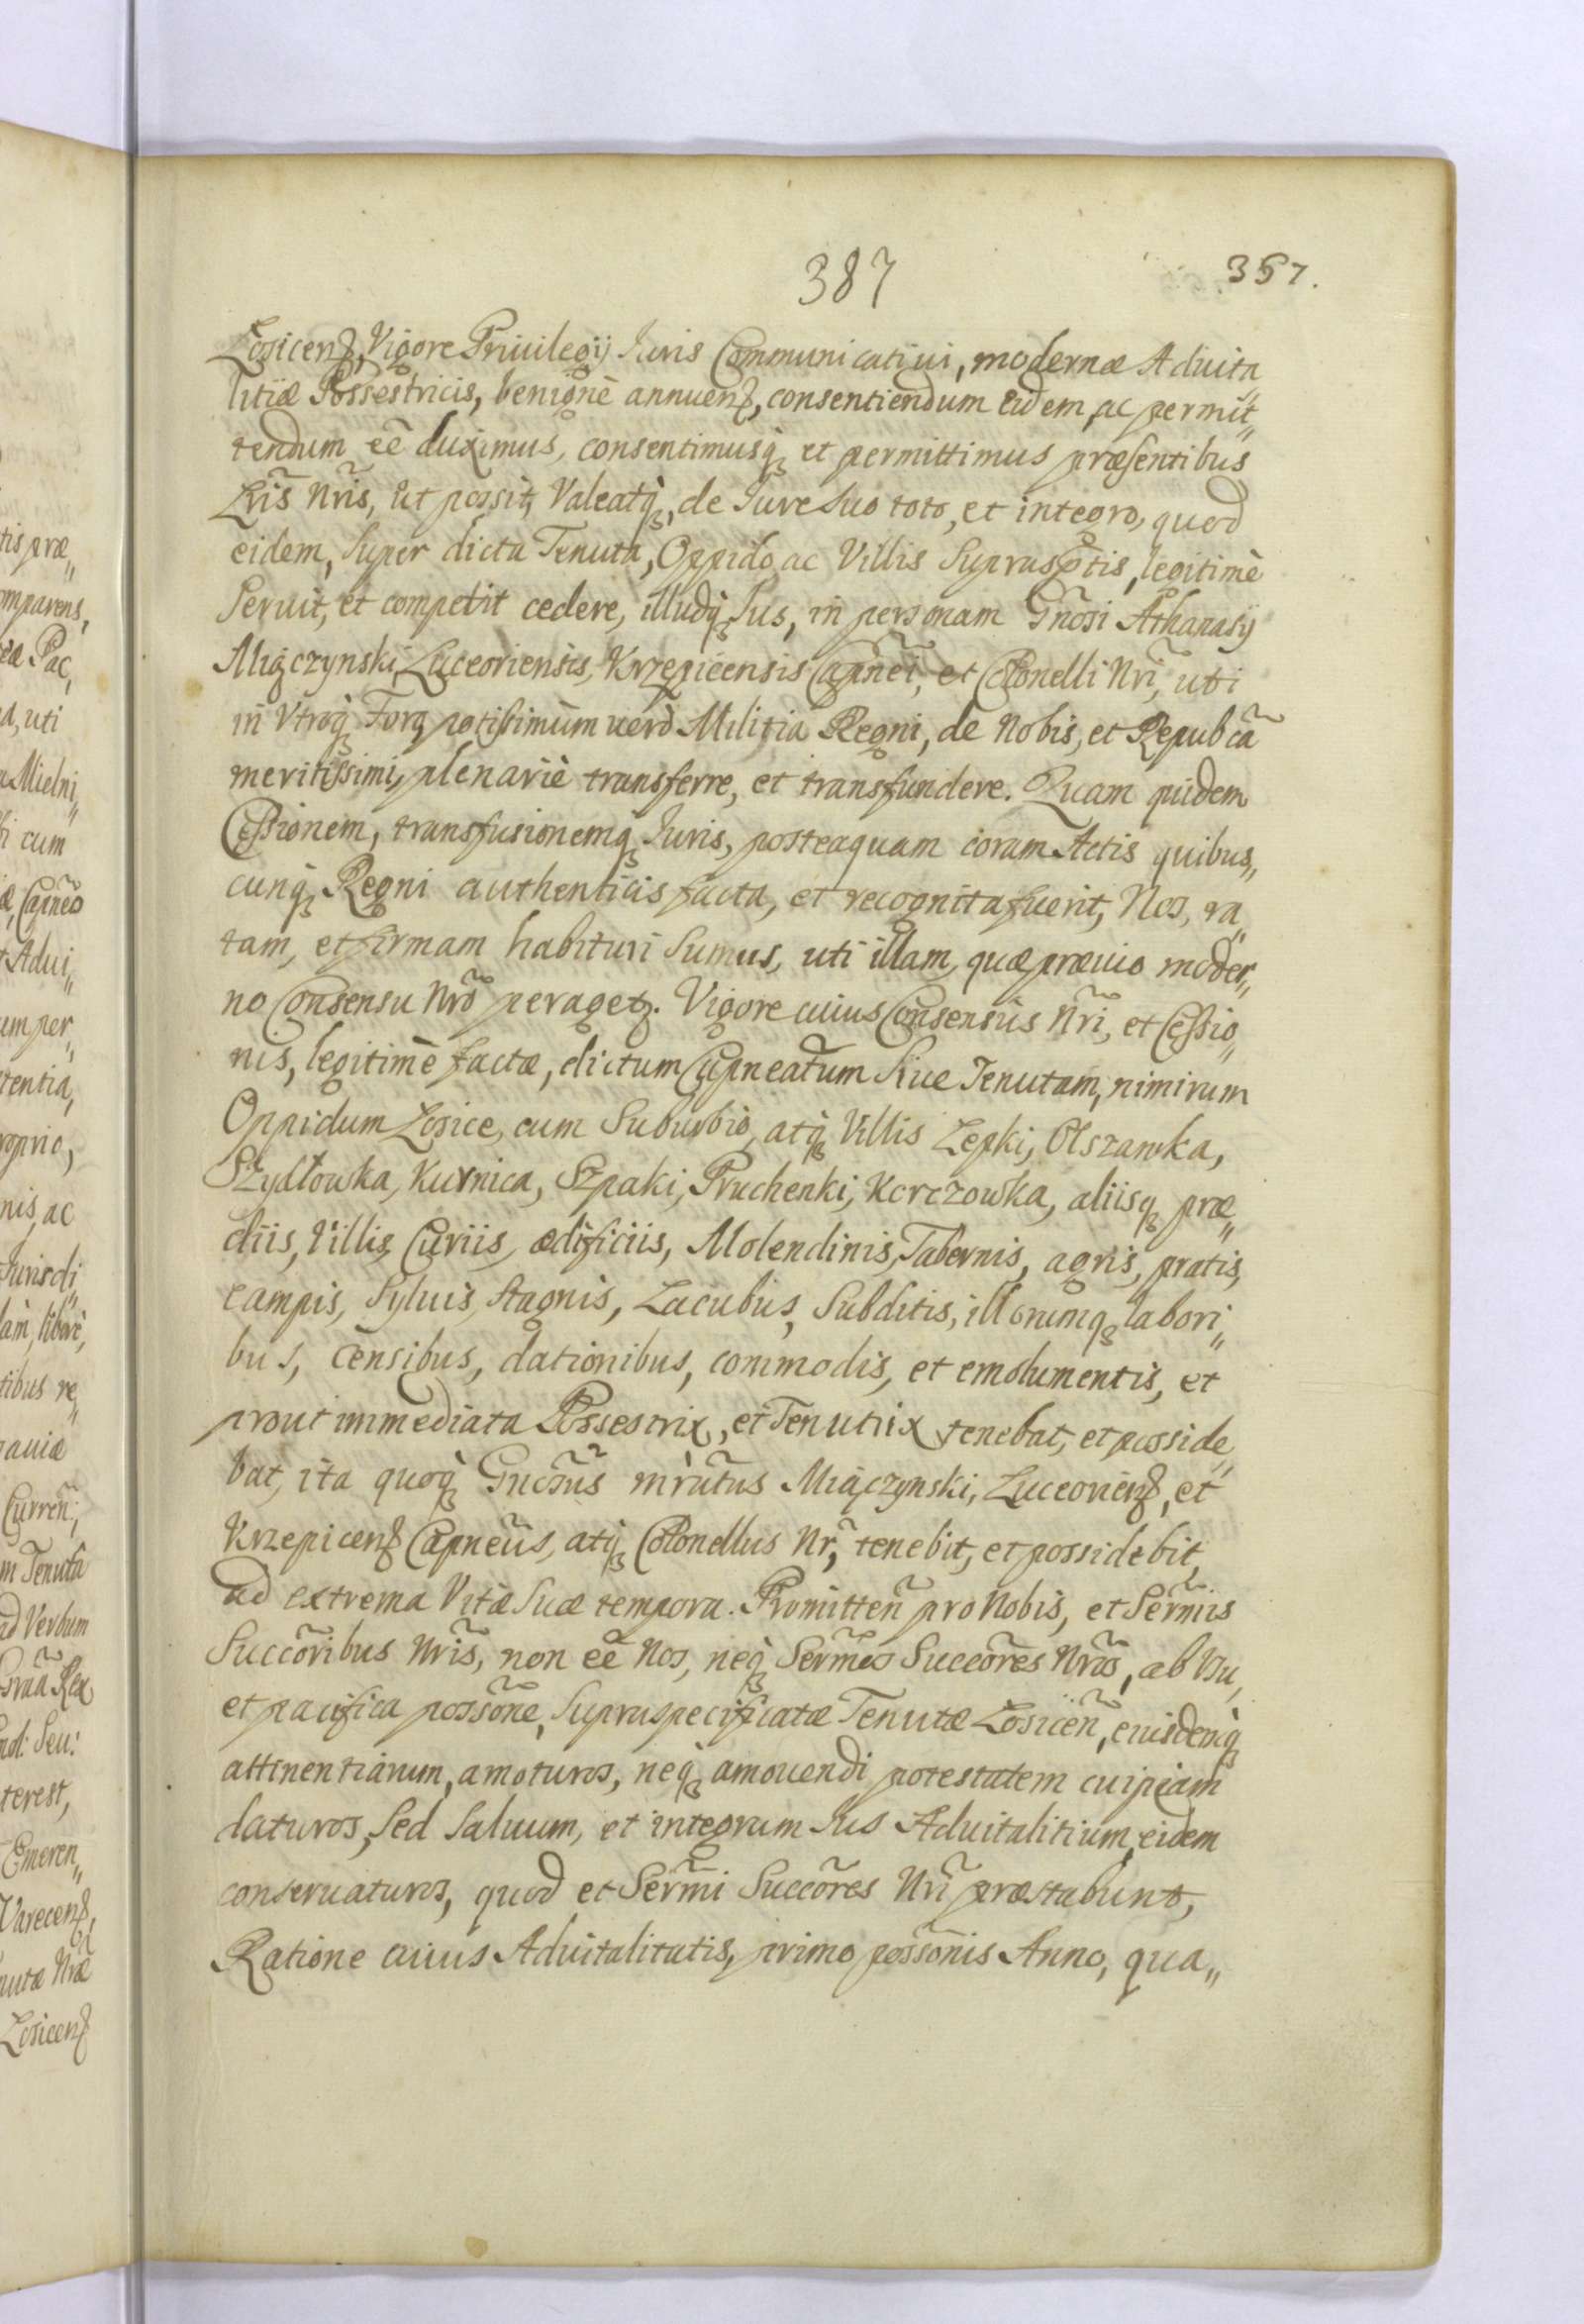 387
357.
Łosicenꝭ, Vigore Priuilegij Iuris Communicatiui, modernæ Aduita„
litiæ Possestricis, benignè annuenꝭ, consentiendum eidem, ac permit„
tendum eē duximus, consentimusqꝫ et permittimus præsentibus
Lris̃ Nris̃, ut possit, Valeatqꝫ, de Iure Suo toto, et integro, quod
eidem, Super dicta Tenuta, Oppido, ac Villis Suprasc̃ptis, legitimè
Seruit, et competit cedere, illudqꝫ Ius, in personam Gnõsi Athanasij
Miączynski, Luceoriensis, Krzepicensis Capnei᷉, et Colonelli Nri᷉, uti
in Vtroqꝫ Foro, potissimùm uerò Militiâ Regni, de Nobis, et Repubcã
meritissimi, plenariè transferre, et transfundere. Quam quidem
Cessionem, transfusionemqꝫ Iuris, posteaquam coram Actis quibus„
cunqꝫ Regni authenticis facta, et recognita fuerit, Nos, ra„
tam, et firmam habituri Sumus, uti illam, quæ præuio moder„
no Consensu Nrõ peragetꝫ. Vigore cuius Consensûs Nri᷉, et Cessio„
nis, legitimè factæ, dictum Capneat̃um Siue Tenutam, nimirum
Oppidum Łosice, cum Suburbio, atqꝫ Villis Łepki, Olszanka,
Szydłowka, Kurnica, Szpaki, Pruchenki, Korczowka, aliisqꝫ præ„
diis, Villis, Curiis, ædificiis, Molendinis, Tabernis, agris, pratis,
campis, Syluis, Stagnis, Lacubus, Subditis, illorumqꝫ labori„
bus, censibus, dationibus, commodis, et emolumentis, et
prout immediata Possestrix, et Tenutrix tenebat, et posside„
bat, ita quoqꝫ Gnõsus mrãtus Miączynski, Luceorienꝭ, et
Krzepicenꝭ Capneũs, atqꝫ Colonellus Nr᷉, tenebit, et possidebit,
ad extrema Vitæ Suæ tempora. Promitteñ pro Nobis, et Serm̃is
Succõribus Nris̃, non eē Nos, neqꝫ Serm̃os Succõres Nrõs, ab Vsu,
et pacifica possõne, Supraspecificatæ Tenutæ Łosiceñ, eiusdemqꝫ
attinentiarum, amoturos, neqꝫ amouendi potestatem cuipiam
daturos, Sed Saluum, et integrum Ius Aduitalitium, eidem
conseruaturos, quod et Serm̃i Succõres Nri᷉ præstabunt,
Ratione cuius Aduitalitatis, primo possõnis Anno, qua„